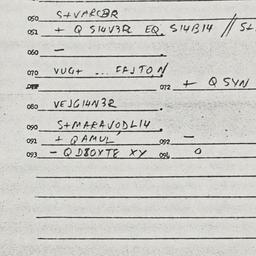 050 S+VARCBR
051 + Q S14V3R EQ. S14B14 // S+
060 –
070 VUG+ ... FAJTON
072 + Q SYN
080 VEJG14N3R
090 S+MARAVODL14
091 + QAMUL 092 –
093 – QD80YTE XY 094 0